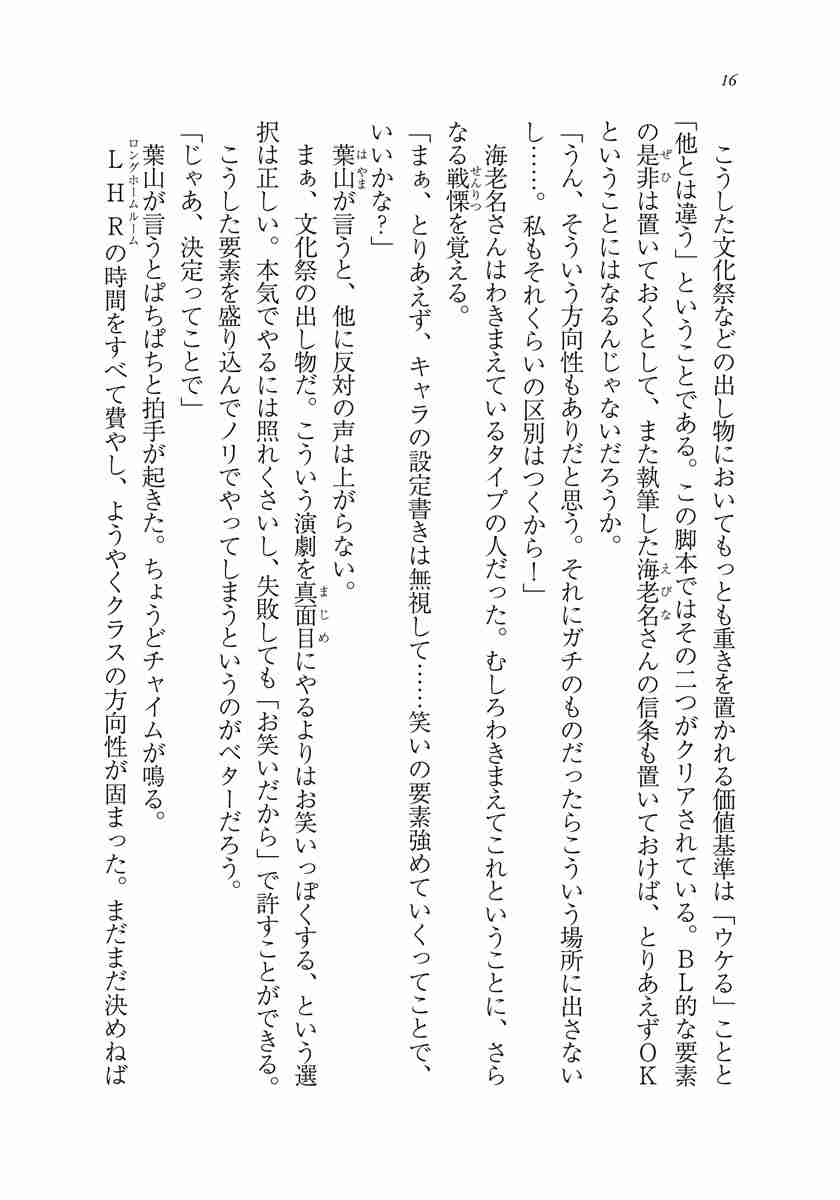 16
　こうした文化祭などの出し物においてもっとも重きを置かれる価値基準は「ウケる」ことと
「他とは違う」ということである。この脚本ではその二つがクリアされている。ＢＬ的な要素
の是非は置いておくとして、また執筆した海老名さんの信条も置いておけば、とりあえずＯＫ
ということにはなるんじゃないだろうか。
「うん、そういう方向性もありだと思う。それにガチのものだったらこういう場所に出さない
し……。私もそれくらいの区別はつくから！」
　海老名さんはわきまえているタイプの人だった。むしろわきまえてこれということに、さら
なる戦慄を覚える。
「まぁ、とりあえず、キャラの設定書きは無視して……笑いの要素強めていくってことで、
いいかな？」
　葉山が言うと、他に反対の声は上がらない。
　まぁ、文化祭の出し物だ。こういう演劇を真面目にやるよりはお笑いっぽくする、という選
択は正しい。本気でやるには照れくさいし、失敗しても「お笑いだから」で許すことができる。
　こうした要素を盛り込んでノリでやってしまうというのがベターだろう。
「じゃあ、決定ってことで」
　葉山が言うとぱちぱちと拍手が起きた。ちょうどチャイムが鳴る。
　ＬＨＲの時間をすべて費やし、ようやくクラスの方向性が固まった。まだまだ決めねば
ぜひ
えびな
せんりつ
はやま
まじめ
ロングホームルーム